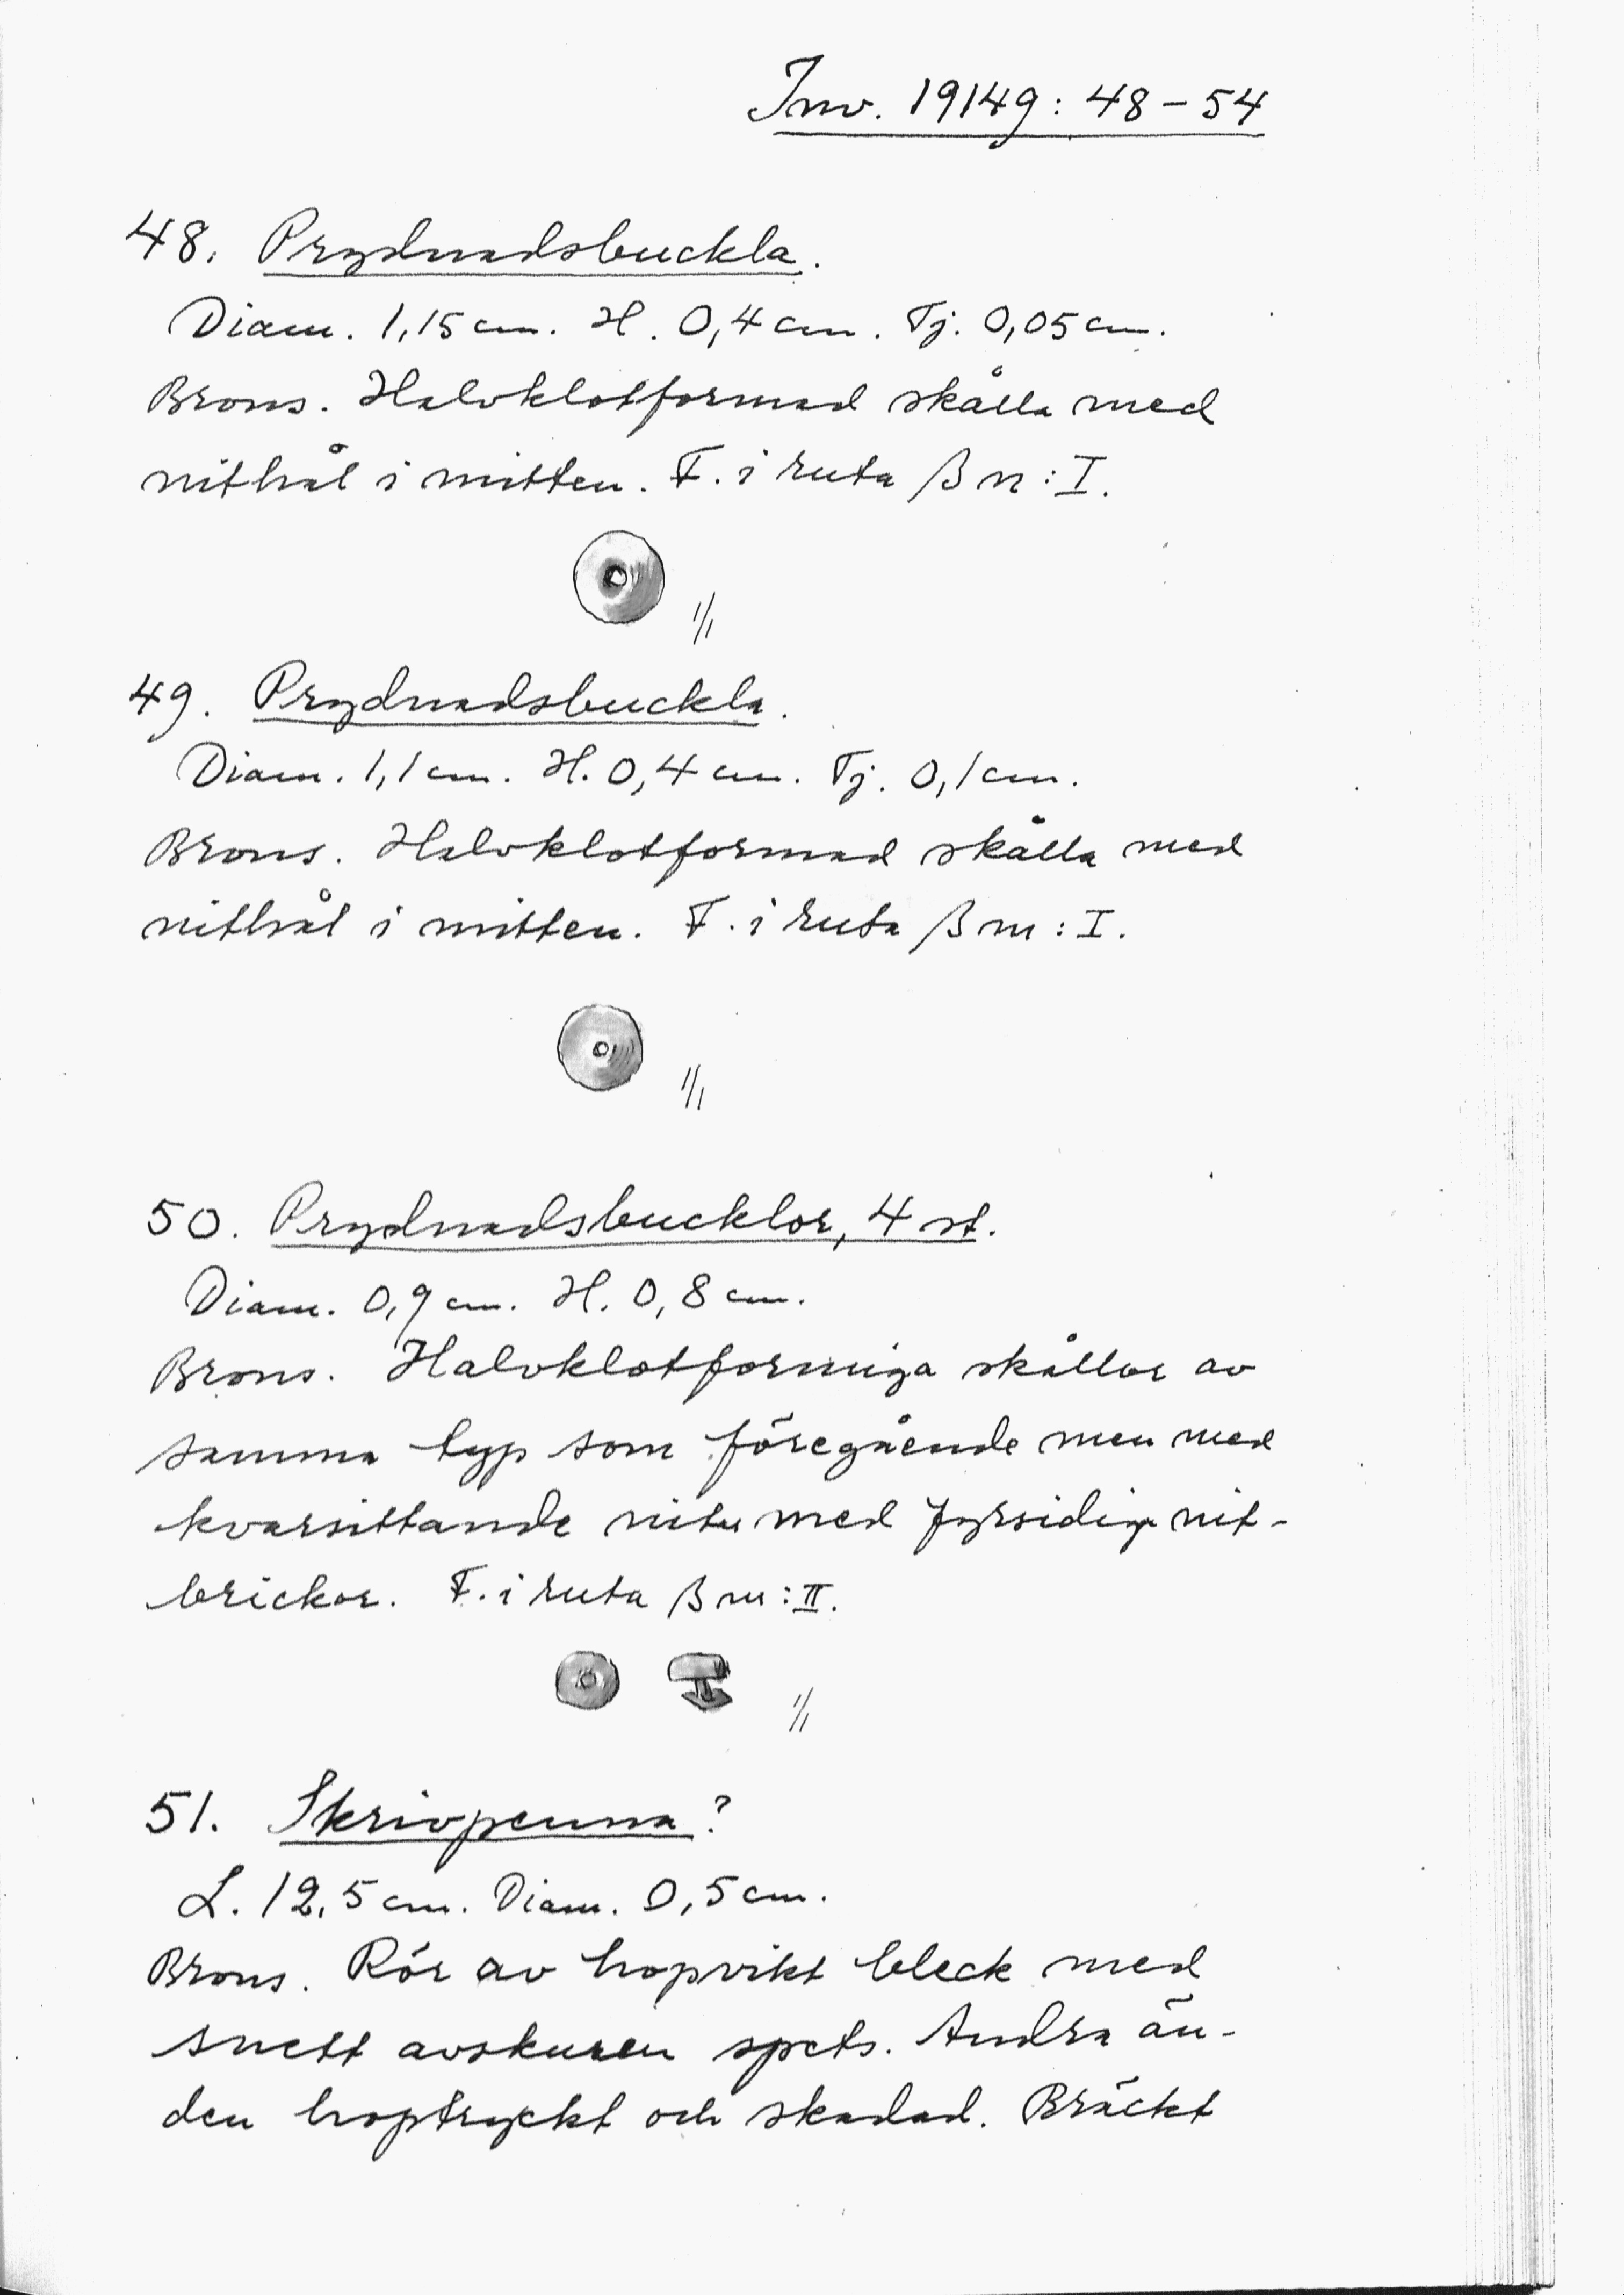 Inv. 19149: 48-54
48. Prydnadsbuckla.
Diam. 1,15 cm. H. 0,4 cm. Tj. 0,05 cm.
Brons. Halvklotformad skålla med
nithål i mitten. F. i ruta ß n: I.
1/1
49. Prydnadsbuckla.
Diam. 1,1 cm. H. 0,4 cm. Tj. 0,1 cm.
Brons. Halvklotformad skålla med
nithål i mitten. F. i ruta ß m: I.
1/1
50. Prydnadsbucklor, 4 st.
Diam. 0,9 cm. H. 0,8 cm.
Brons. Halvklotformiga skållor av
samma typ som föregående men med
kvarsittande nitar med fyrsidiga nit-
brickor. F. i ruta ß m: II.
1/1
51. Skrivpenna?
L. 12,5 cm. Diam. 0,5 cm.
Brons. Rör av hopvikt bleck med
snett avskuren spets. Andra än-
den hoptryckt och skadad. Bräckt